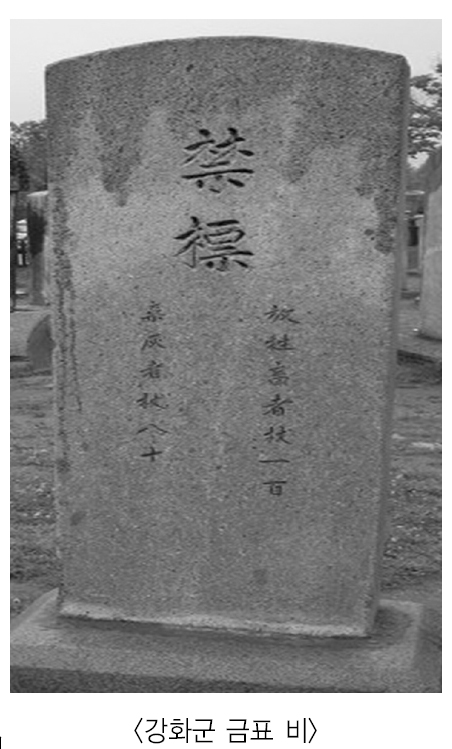 禁
標
放牲畜者杖一百
棄灰者杖八十
<강화군 금표 비>